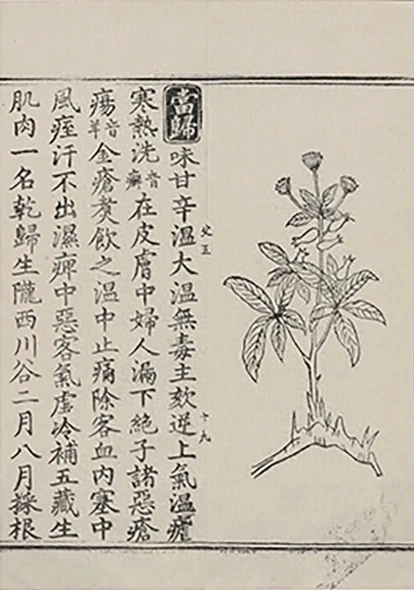 當歸味甘辛溫大溫無毒主欬逆上氣溫瘧
十九
寒熱洗音癬在皮膚中婦人漏下絶子諸惡瘡
瘍音羊金瘡煑飲之溫中止痛除客血內塞中
風痓汗不出濕痺中惡客氣虛冷補五藏生
肌肉一名乾歸生隴西川谷二月八月採根